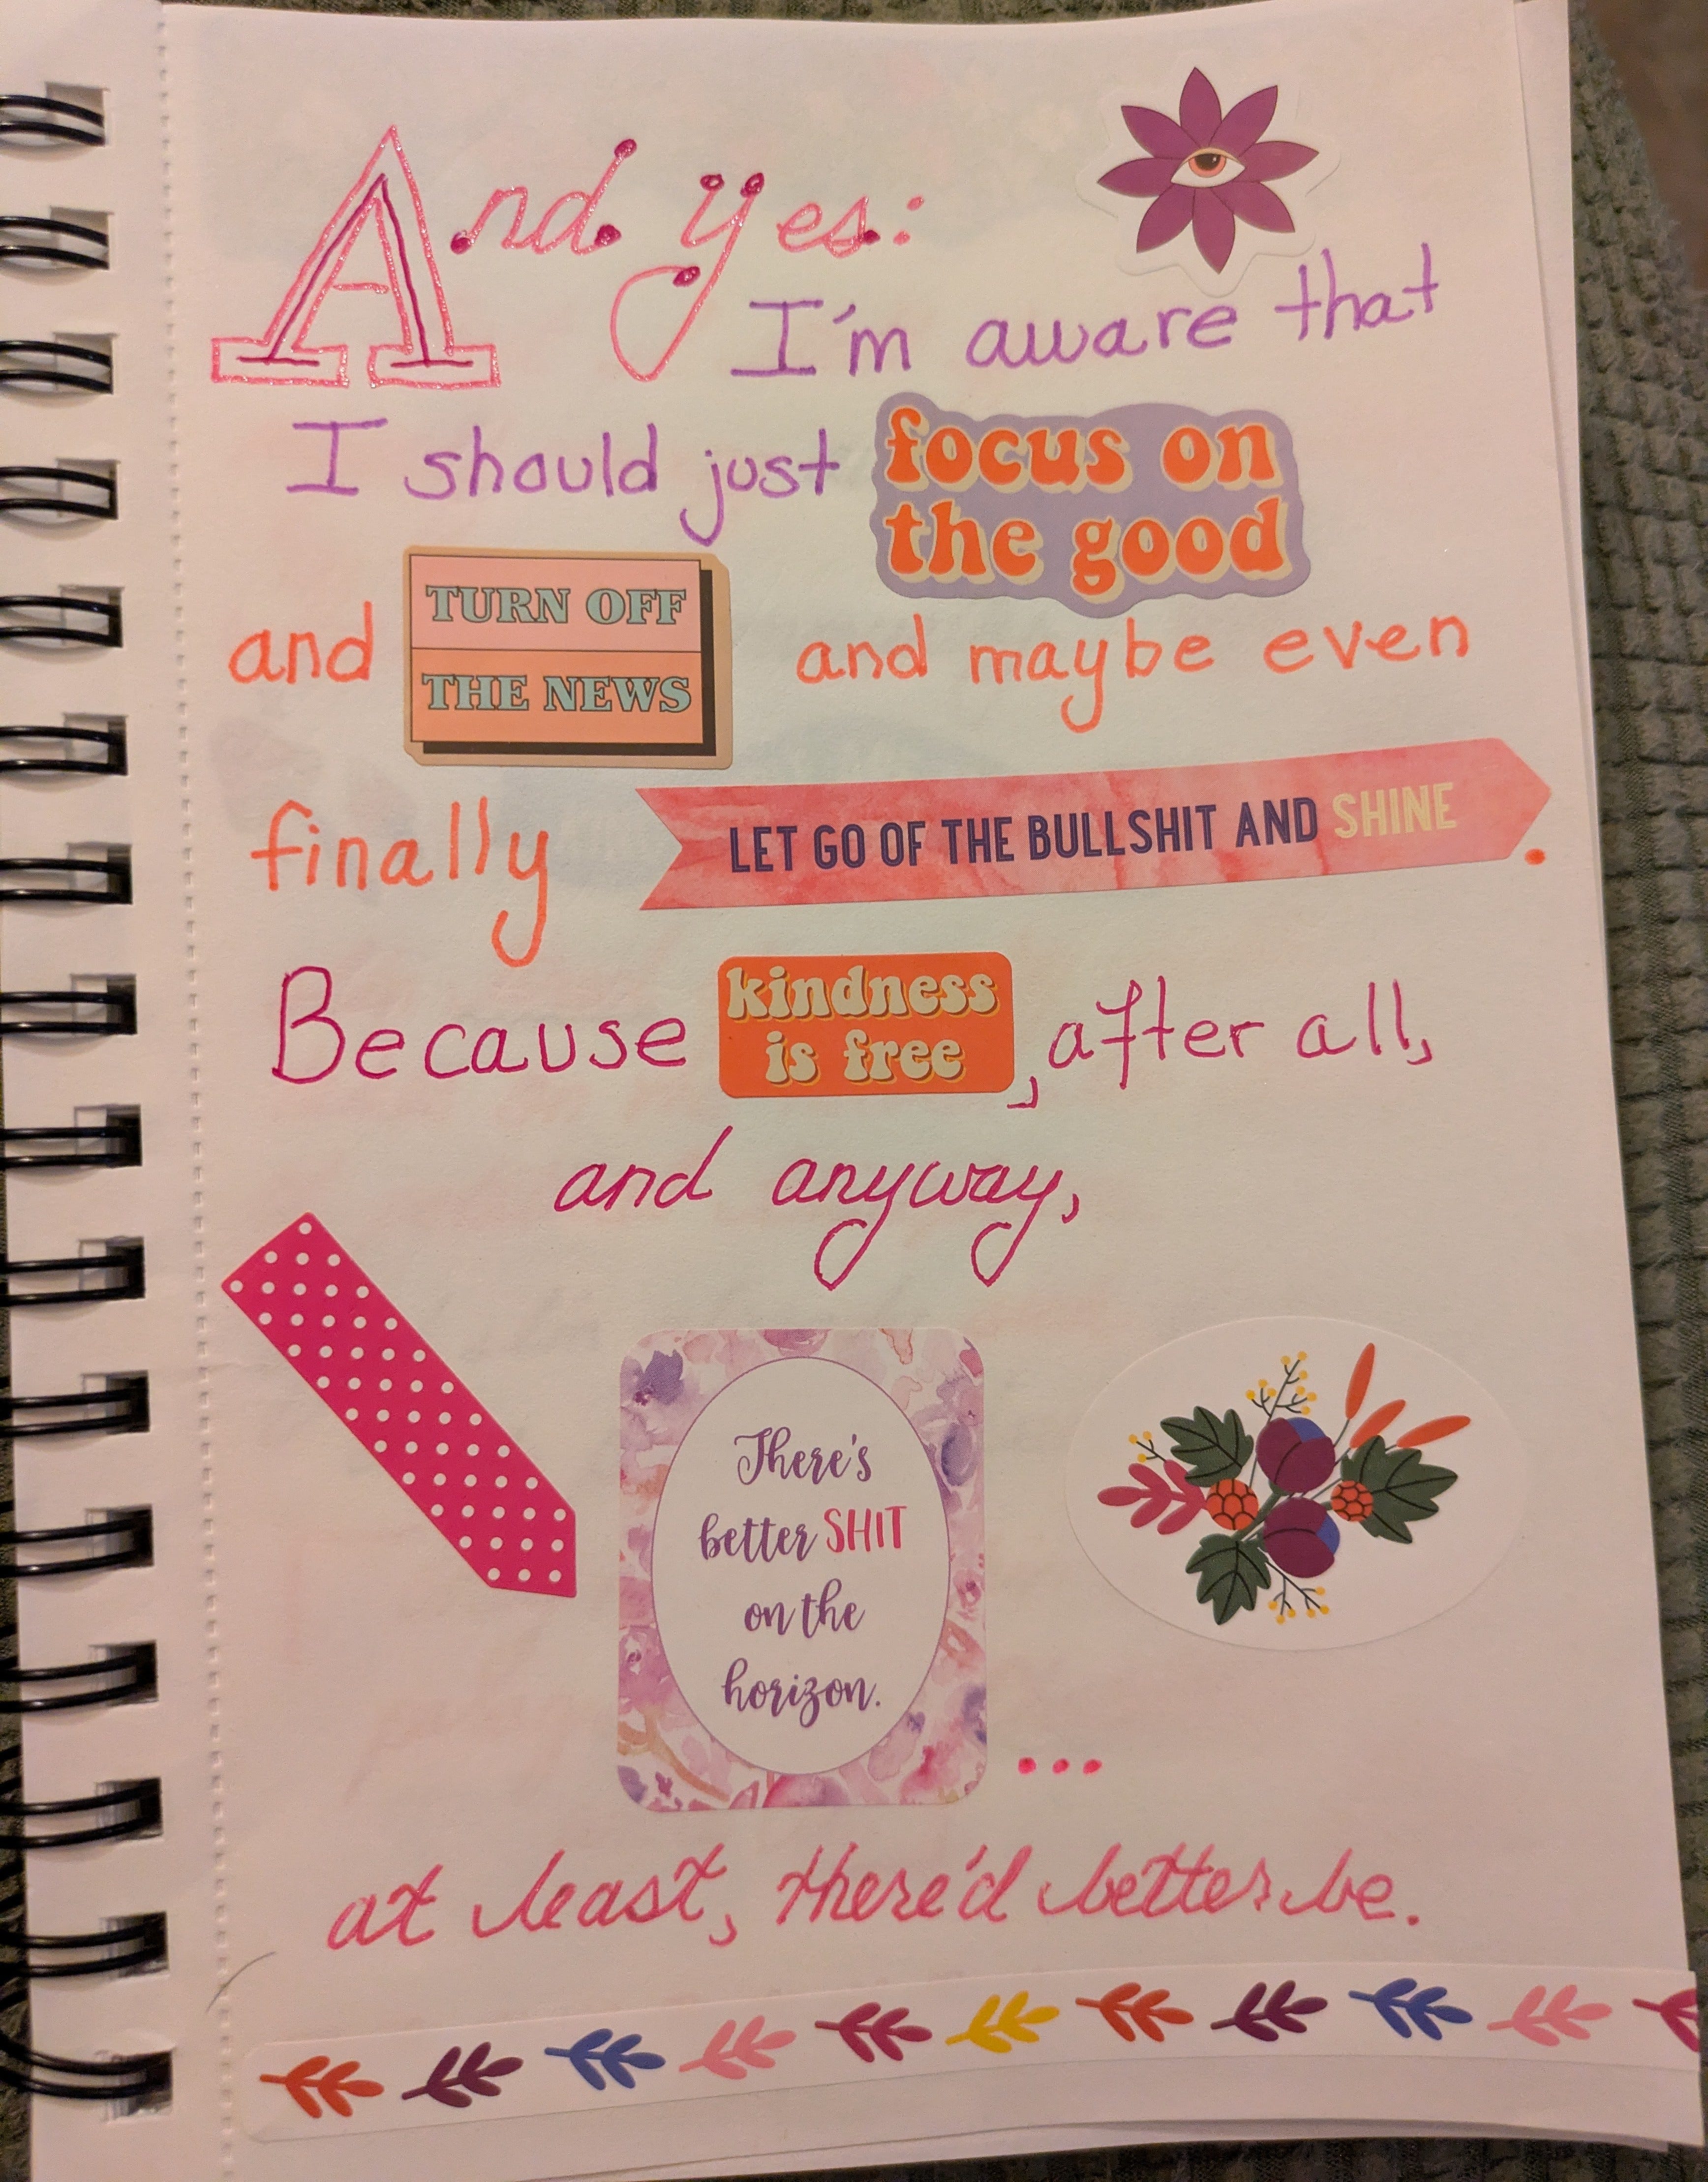 And yes:
I'm aware that
I should just focus on
the good
and TURN OFF
THE NEWS and maybe even
finally LET GO OF THE BULLSHIT AND SHINE.
Because kindness
is free, after all,
and anyway,
There's
better SHIT
on the
horizon.
...
at least, there'd better be.